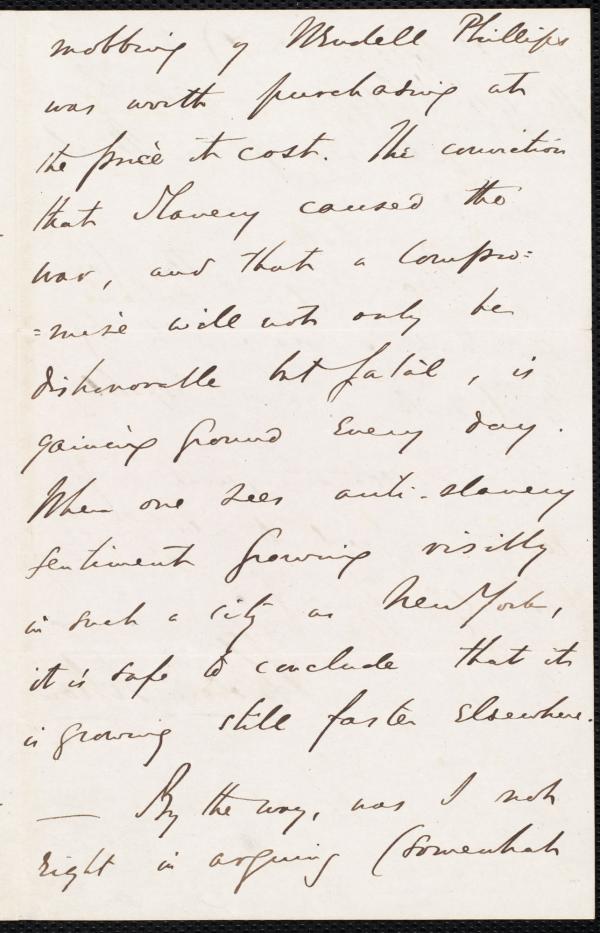 mobbing of Wendell Phillips
was worth purchasing at
the price it cost. The conviction
that Slavery caused the
war, and that a Compro=
=mise will not only be
dishonorable but fatal, is
gaining ground every day.
When one sees anti-slavery
sentiment growing visibly
in such a city as New York,
it is safe to conclude that it
is growing still faster elsewhere.
— By the way, was I not
right in arguing (somewhat